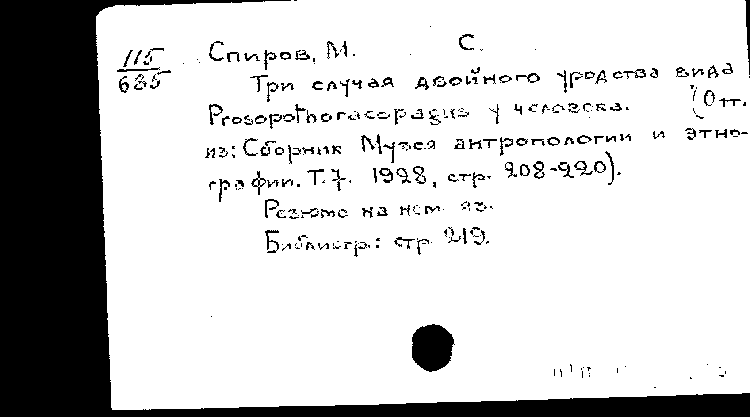 115
685
Спиров, М. С.
Три случая двойного уродства вида
Prosopothoracopagus у человека. (Отт.
из: Сборник Музея антропологии и этно-
графии. Т. 7. 1928, стр. 208-220).
Резюме на нем. яз.
Библиогр.: стр 219.